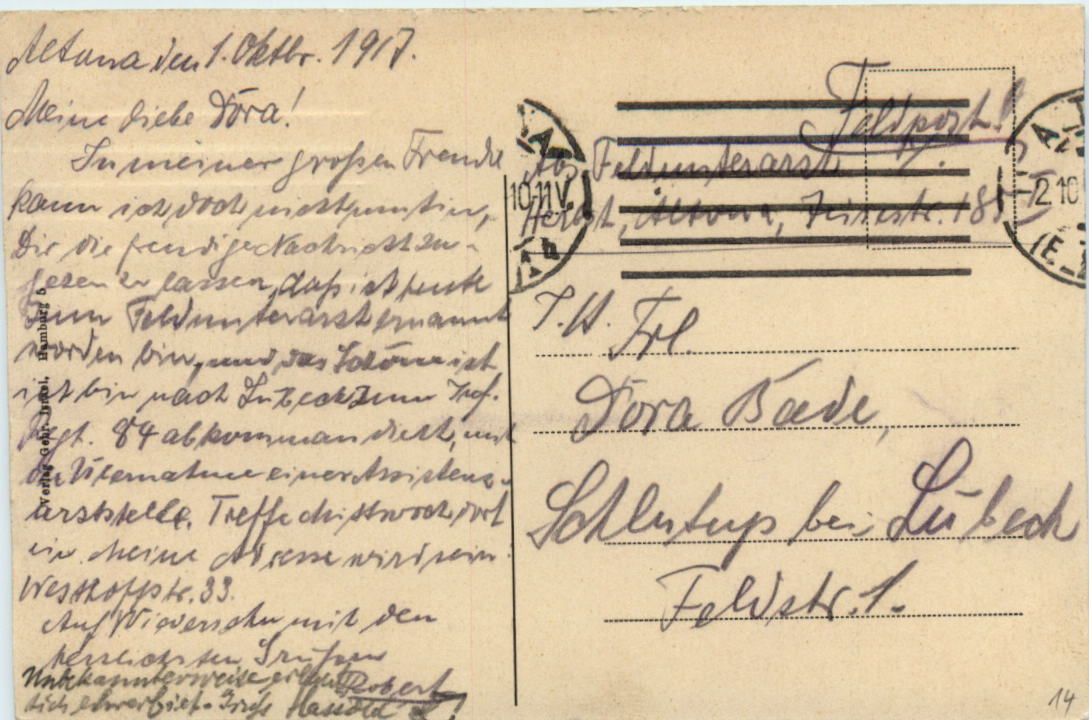 Altona den 1. Oktbr. 1917.
Meine liebe Dora!
In meiner großen Freude
kann ich doch nicht umhin,
Dir die freudige Nachricht zu-
lassen, daß ich heute
zum Feldunterarzt ernannt
worden bin, und das Schöne ist
ich bin nach Lübeck zum
Rgt. 84 abkommandiert, mit
der Übernahme einer Assistenz-
arztstelle. Treffe Mittwoch dort
ein. Meine Adresse wird sein
33.
Auf Wiedersehn mit den
herzlichsten Grüßen
Robert
Unbekannterweise erlaubt
sich
Verlag Gebr. Hamburg 5
Feldpost!
Abs. Feldunterarzt
Herbst, Altona,
10-11V.
2.10
Frl.
Dora Bade,
Schlutup bei Lübeck
Feldstr. 1.
14